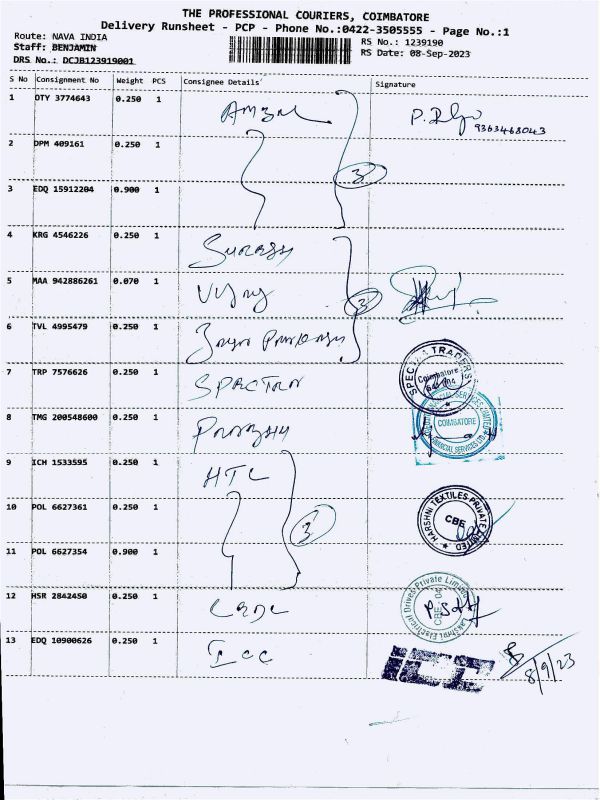 THE PROFESSIONAL COURIERS, COIMBATORE
Delivery Runsheet - PCP - Phone No.:0422-3505555 - Page No.:1
Route: NAVA INDIA
Staff: BENJAMIN
DRS No.: DCJB123919001
RS No.: 1239190
RS Date: 08-Sep-2023
S No Consignment No Weight PCS Consignee Details Signature
1 OTY 3774643 0.250 1
9363468043
2 DPM 409161 0.250 1
3 EDQ 15912204 0.900 1
3
4 KRG 4546226 0.250 1 Suresh
5 MAA 942886261 0.070 1 Vijay
3
6 TVL 4995479 0.250 1
7 TRP 7576626 0.250 1 Spectra
SPECTRA TRADERS
Coimbatore
8 TMG 200548600 0.250 1
COIMBATORE
9 ICH 1533595 0.250 1 HTL
10 POL 6627361 0.250 1
3
HARSHNI TEXTILES PRIVATE LIMITED
CBE
11 POL 6627354 0.900 1
12 HSR 2842450 0.250 1
Lakshmi Electrical Drives Private Limited
CBE 04
13 EDQ 10900626 0.250 1 Icc
icc
8/9/23